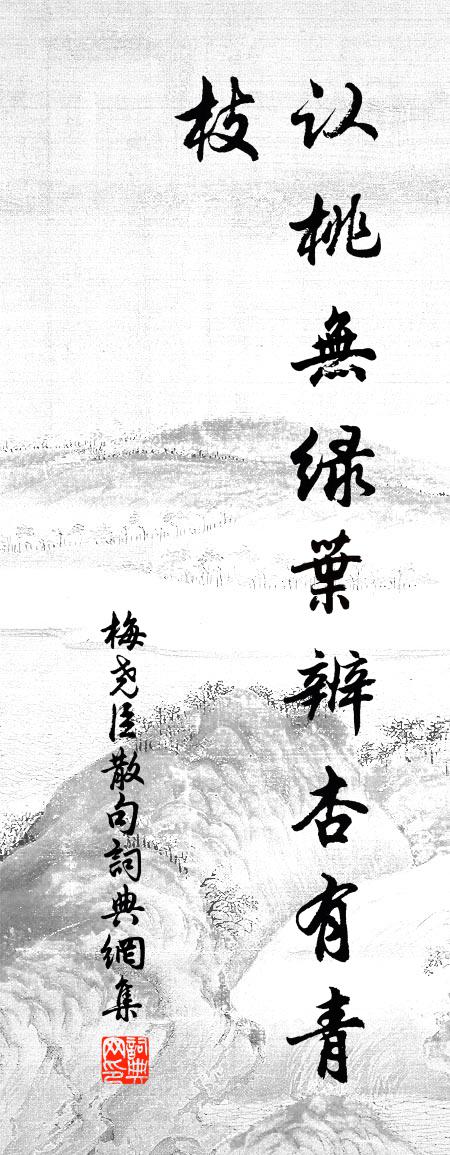 认桃無緑葉辨杏有青
枝
梅尧臣散句詞典網集
詞典网印